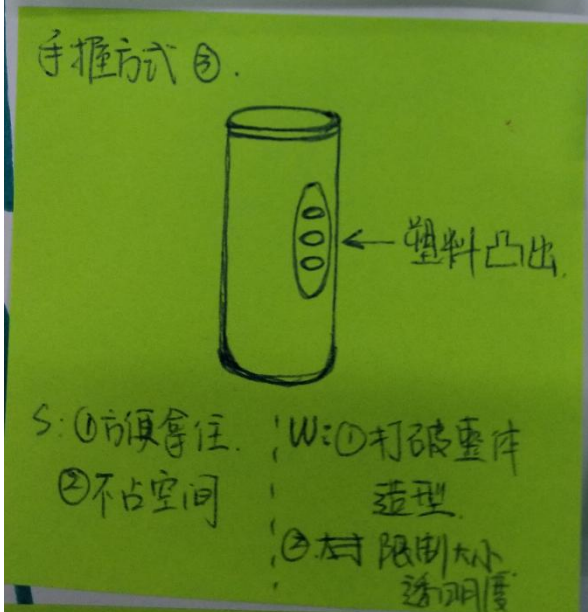 手握方式③.
塑料凸出.
S:①方便拿住.
②不占空间
W:①打破整体
造型.
②限制大小
透明度